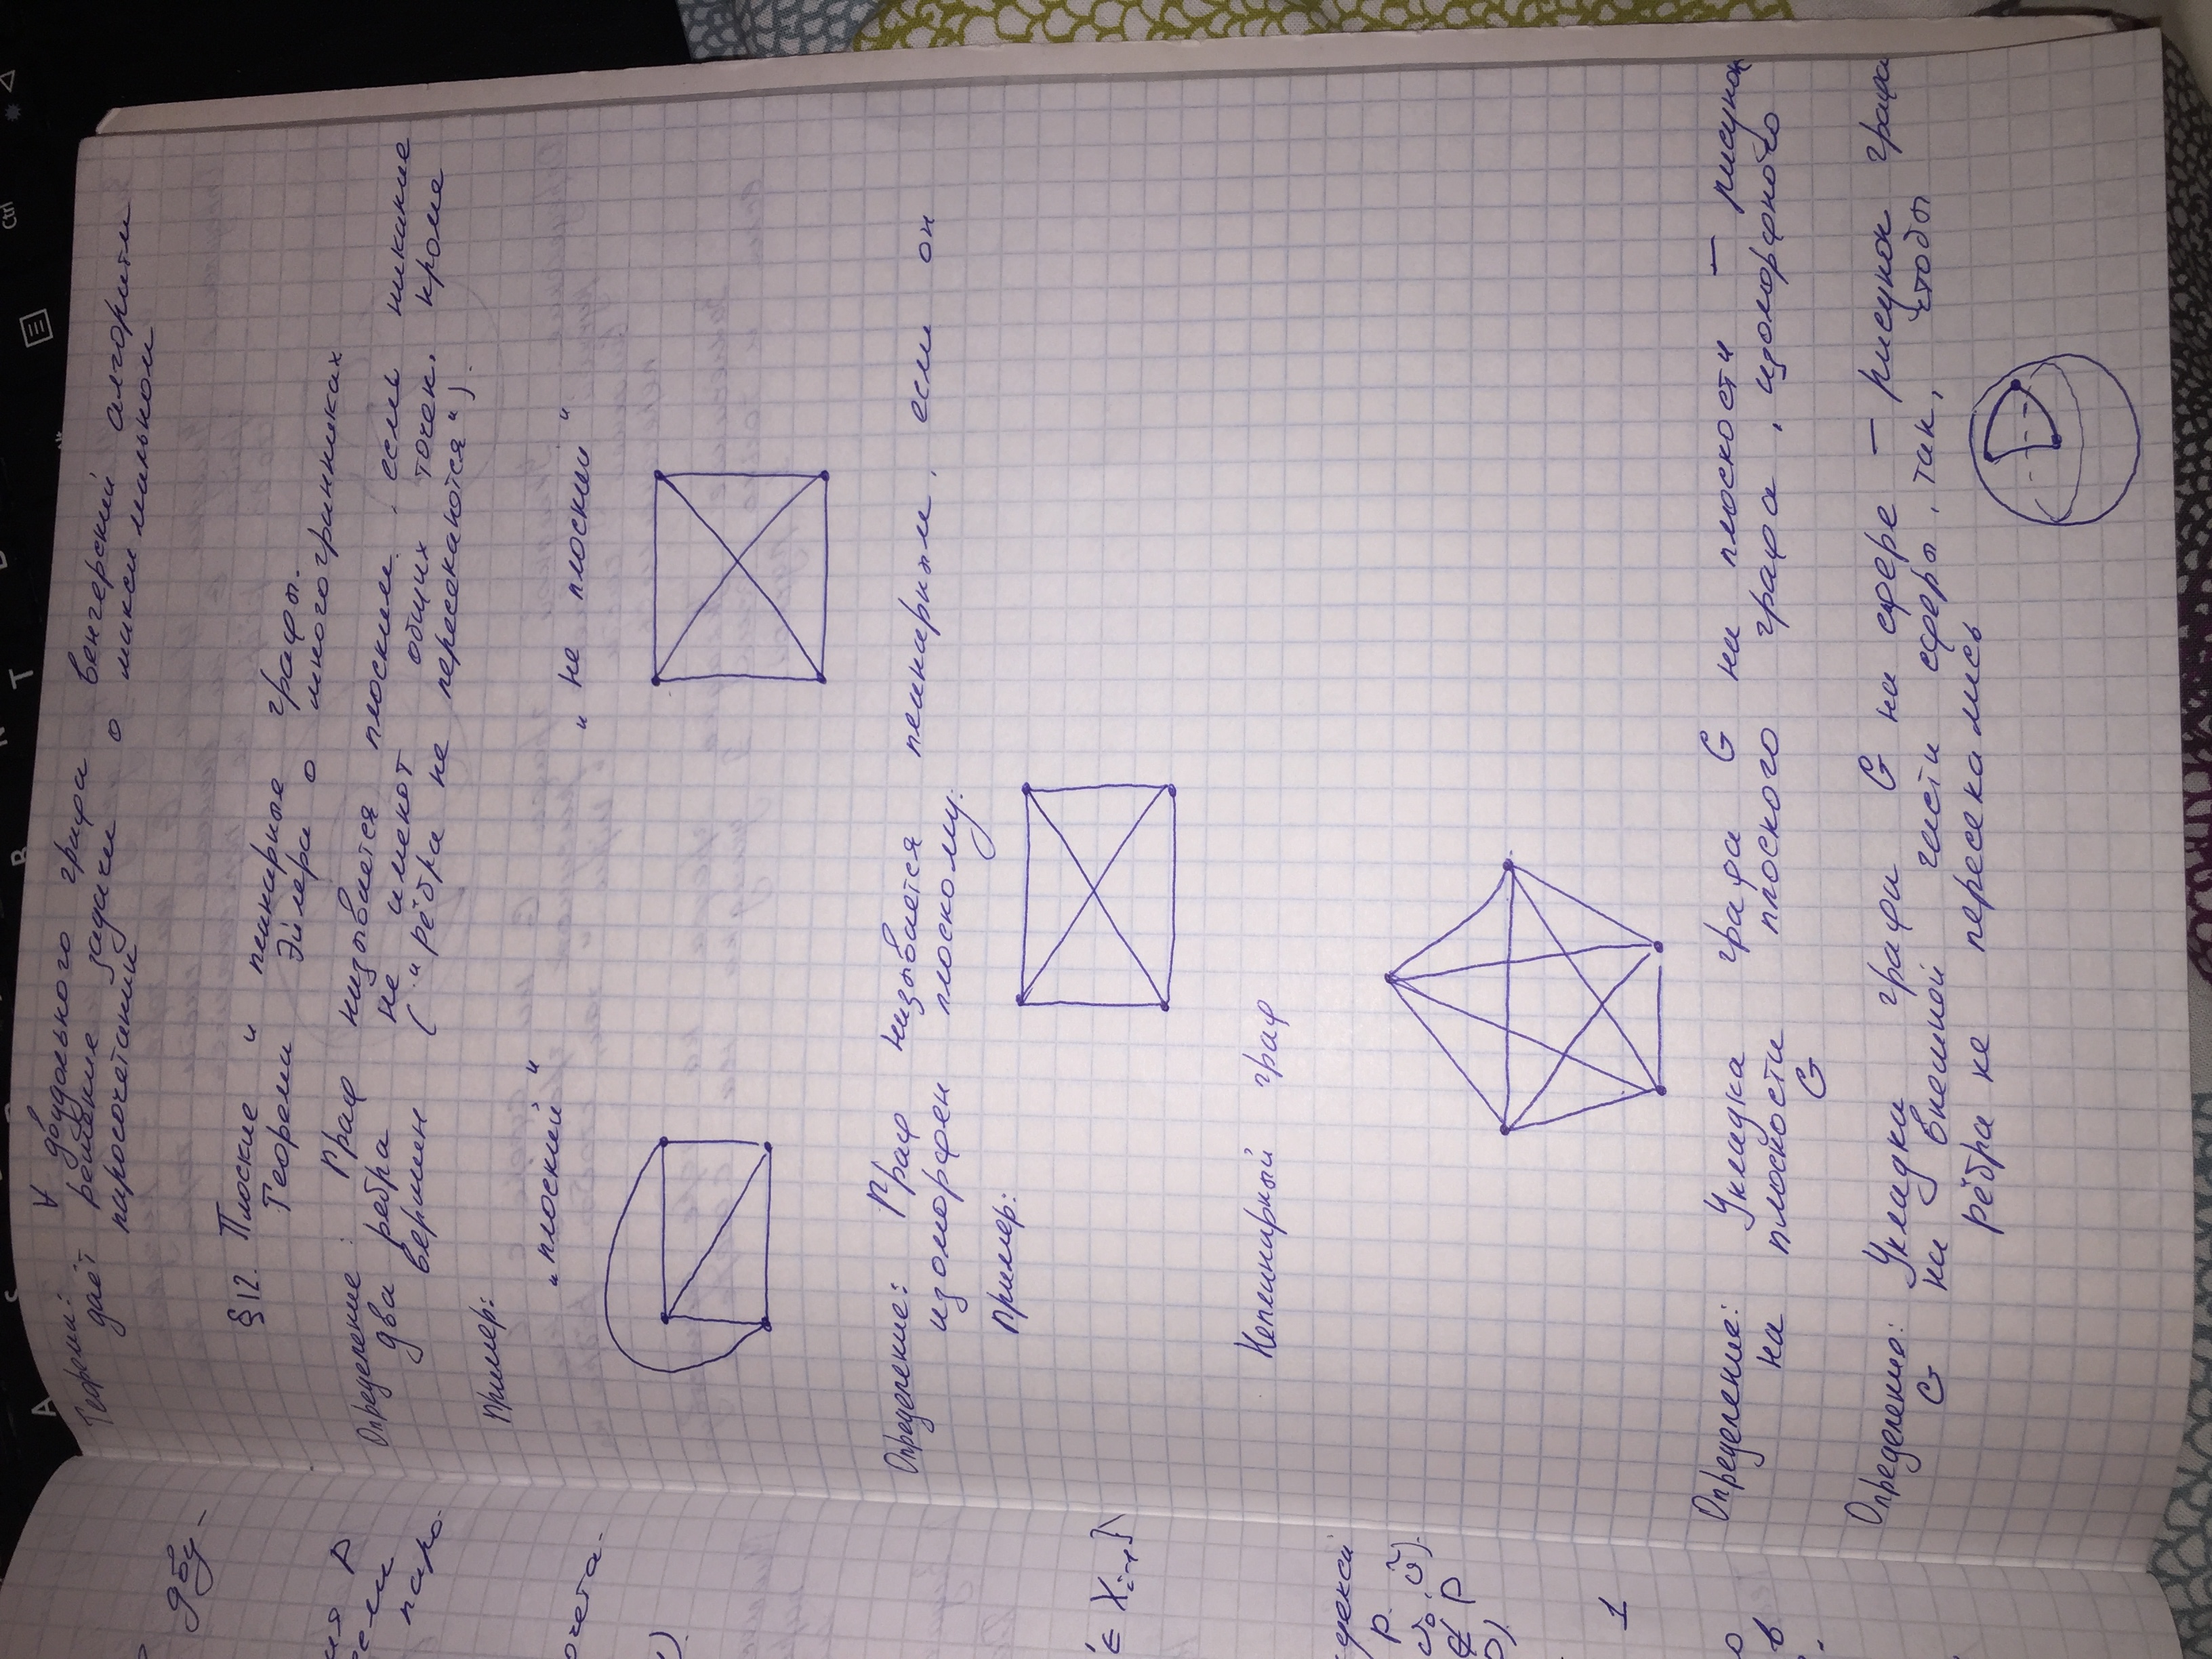 Теорема: ∀ двудольного графа венгерский алгоритм
даёт решение задачи о максимальном
паросочетании
§12. Плоские и планарные графы.
Теорема Эйлера о многогранниках
Определение: Граф называется плоским, если никакие
два ребра не имеют общих точек, кроме
вершин ("рёбра не пересекаются").
Пример:
"плоский"
"не плоский"
Определение: Граф называется планарным, если он
изоморфен плоскому.
Пример:
Непланарный граф
Определение: Укладка графа G на плоскости — рисунок
на плоскости плоского графа, изоморфного
G
Определение: Укладка графа G на сфере — рисунок графа
G на внешней части сферы, так, чтобы
рёбра не пересекались
дву-
P
паро-
∈ Xᵢ₋₁}
P.
∉ P
1
в
A
S
B
N
T
Ctrl